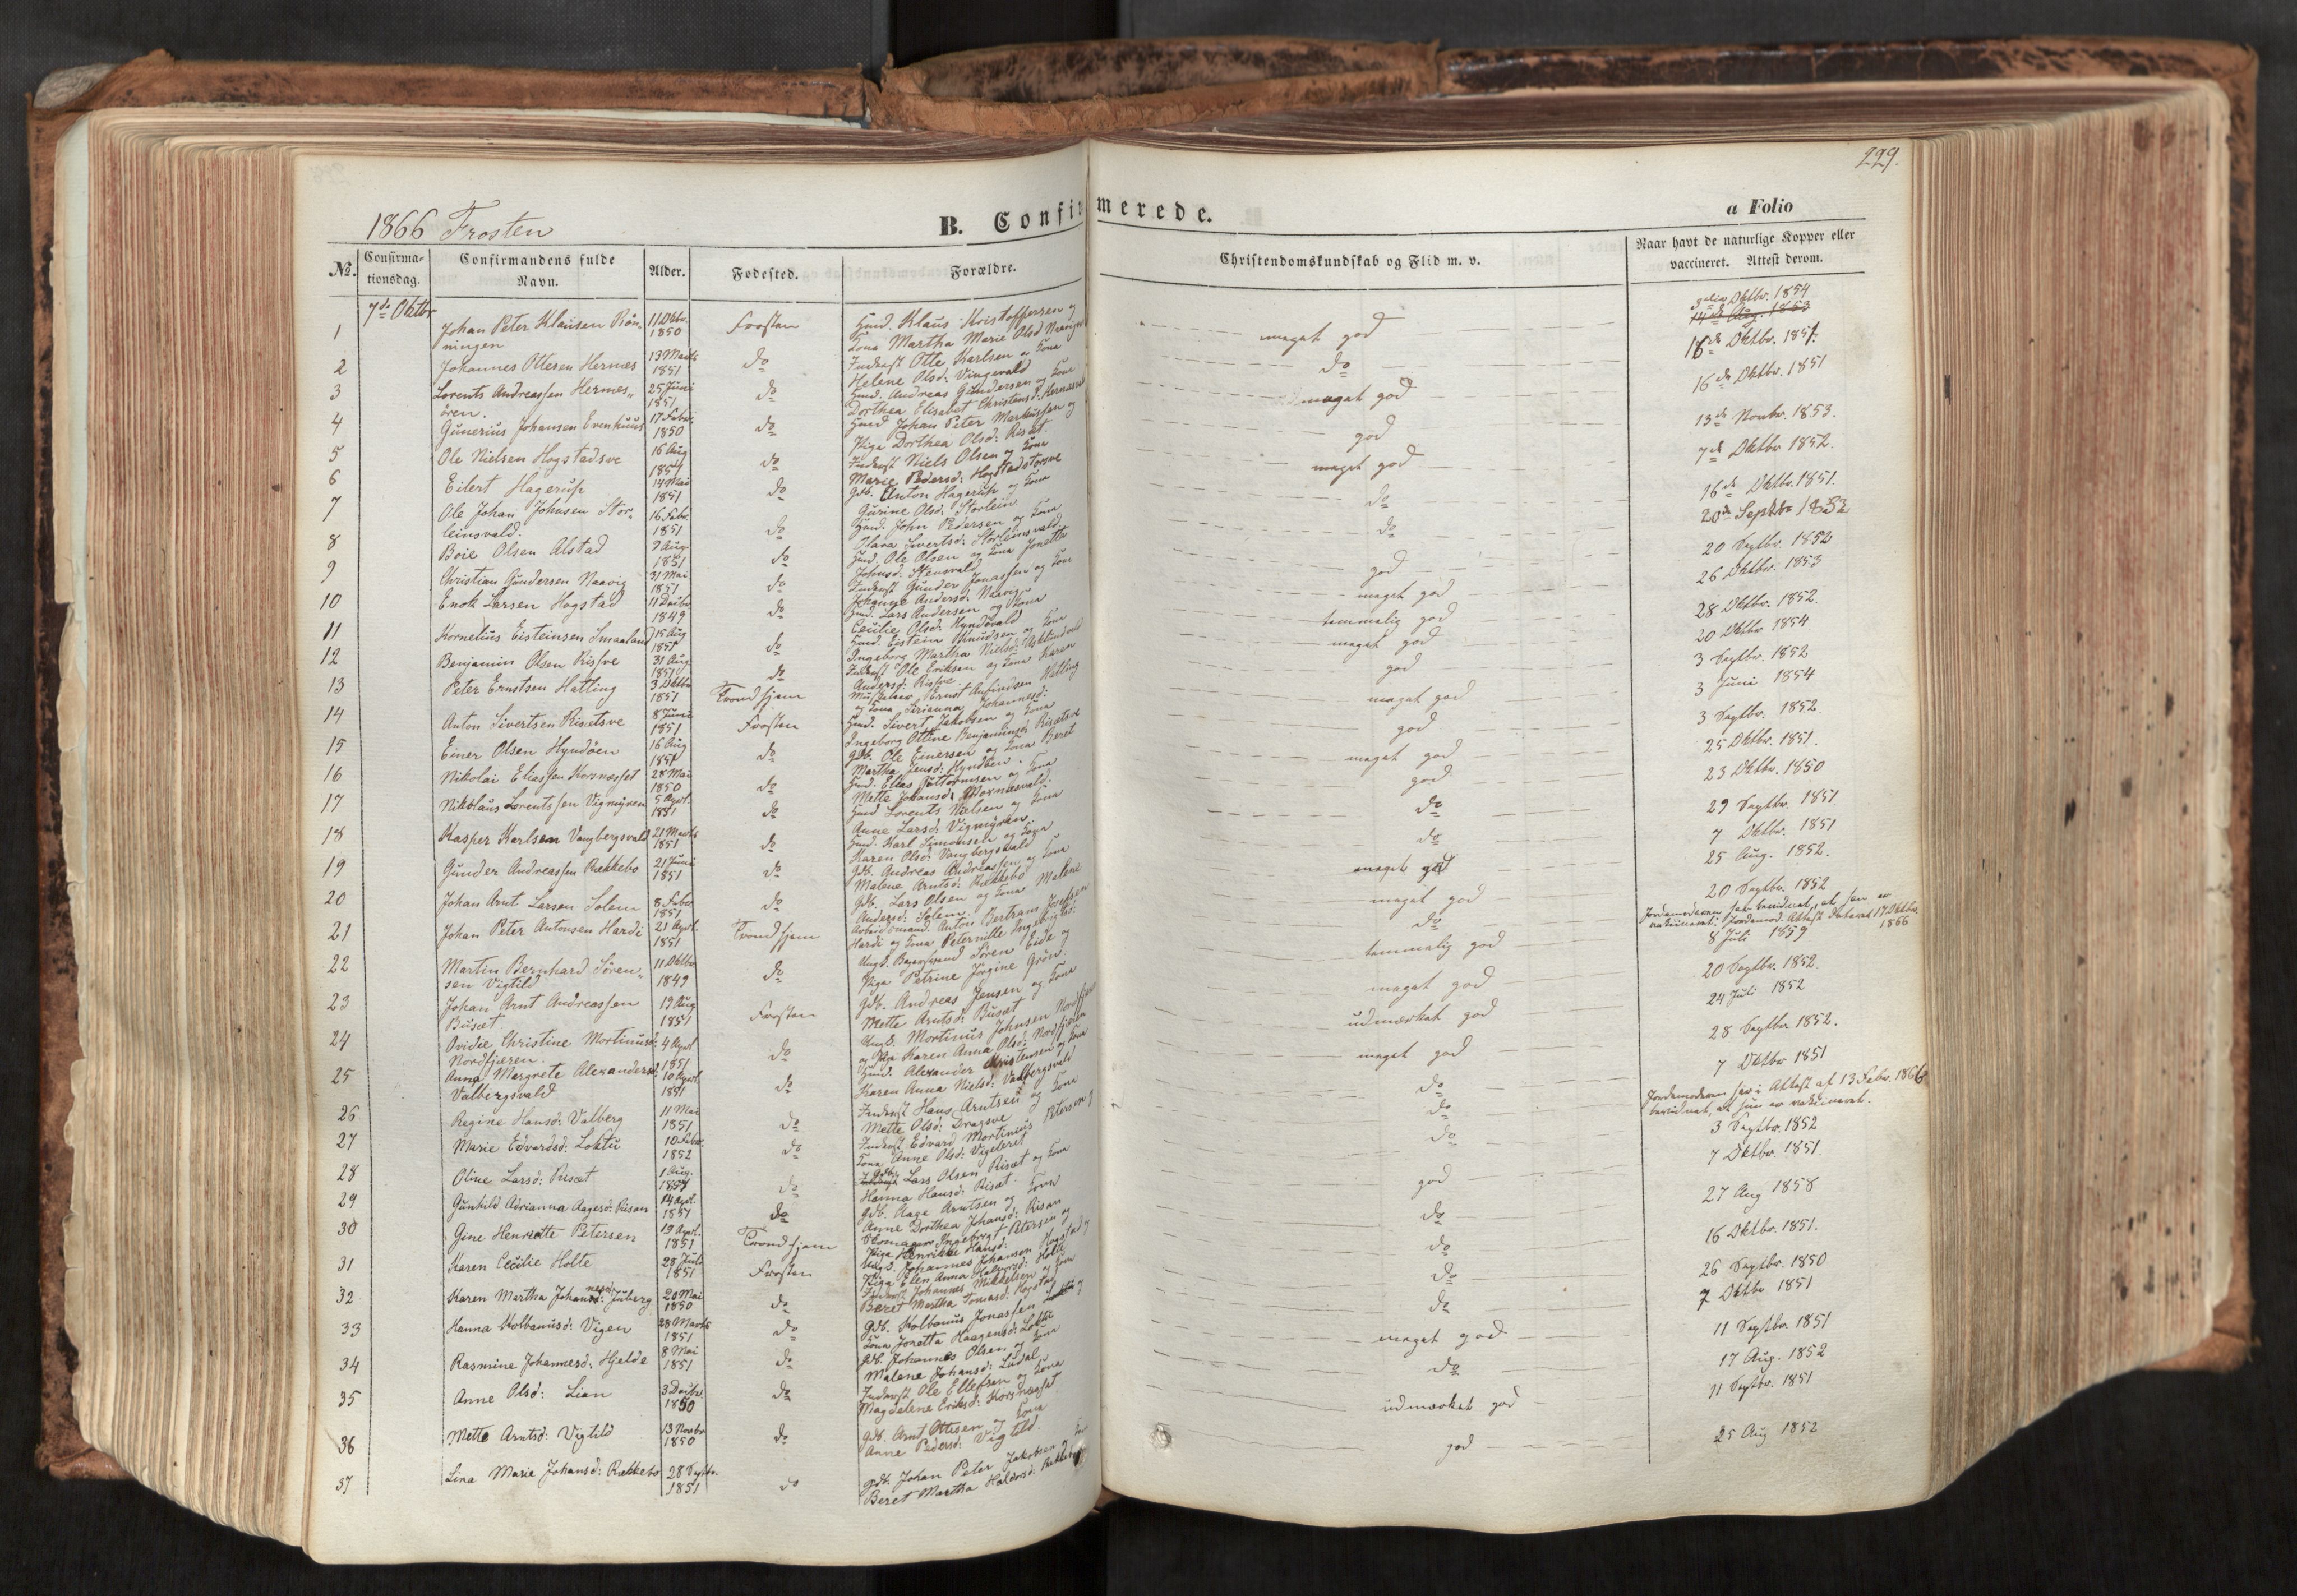 229.
1866 Frosten
B. Confir
merede.
a Folio
No.
Confirma-
tionsdag.
Confirmandens fulde
Navn.
Alder.
Fødested.
Forældre.
Christendomskundskab og Flid m. v.
Naar havt de naturlige Kopper eller
vaccineret. Attest derom.
7de Oktbr
1 Johan Peter Klausen Røn- 11 Oktbr. Frosten Husmd. Klaus Kristoffersen og meget god Oktbr. 1854
ningen 1850 Kona Martha Marie Olsd 14de Aug. 1853
2 Johannes Ottesen Hernæs 13 Marts do Inderst Otte Karlsen og Kona do 16de Oktbr. 1851.
1851 Helene Olsd: Vingsvald
3 Lorents Andreassen Hernes- 25 Juni do Husmd. Andreas Gundersen og Kona meget god 16de Oktbr. 1851
ören. 1851 Dorthea Elisabet Christensd:
4 Gunerius Johansen Evenhuus 17 Febr. do Husmd Johan Peter Markussen og god 13de Novbr. 1853.
1850 Pige Dorthea Olsd: Risat.
5 Ole Nielsen Hogstadsve 16 Aug do Inderst Niels Olsen og Kona meget god 7de Oktbr 1852.
1851 Marie Pedersd: Hogstadstorpve
6 Eilert Hagerup 14 Mai do Gdb. Anton Hagerup og Kona do 16de Oktbr. 1851.
1851 Gurine Olsd: Storlein
7 Ole Johan Johnsen Stor- 16 Febr. do Husmd. John Pedersen og Kona do 20de Septbr 1852
leinsvald. 1851 Sivertsd: Storleinsvald
8 Boie Olsen Alstad 9 Aug. do Husmd. Ole Olsen og Kona Jonetta god 20 Septbr. 1852
1851 Johnsd: Stensvald
9 Christian Gundersen Naavig 31 Mai do Inderst Gunder Jonassen og Kona meget god 26 Oktbr. 1853
1851 Johanne Andersd: Naavig
10 Enok Larsen Hogstad 11 Decbr do Husmd. Lars Andersen og Kona temmelig god 28 Oktbr. 1852.
1849 Cecilie Olsd: Hyndövald
11 Kornelius Eisteinsen Smaaland 15 Aug do Husmd. Eistein Knudsen og Kona meget god 20 Oktbr 1854
1851 Ingeborg Martha Nielsd:
12 Benjamin Olsen Risfve 31 Aug do Inderst Ole Eriksen og Kona Karen god 3 Septbr. 1852
1851 Andersd: Risfve.
13 Peter Ernstsen Hatling 3 Oktbr Trondhjem Ernst Anfindsen Hatling meget god 3 Juni 1854
1851 og Kona Johannesd:
14 Anton Sivertsen Risetsve 8 Juni Frosten Husmd. Sivert Jakobsen og Kona god 3 Septbr. 1852.
1851 Ingeborg Ottine Benjaminsd: Risatsve
15 Einer Olsen Hyndöen 16 Aug do Gdb. Ole Einersen og Kona Beret meget god 25 Oktbr. 1851.
1851 Martha Jensd: Hyndöen.
16 Nikolai Eliassen Korsnæsset 28 Mai do Husmd. Elias Guttormsen og Kona god 23 Oktbr. 1850
1850 Mette Johansd:
17 Nikolaus Lorentssen Vigmyren 5 Aprl. do Husmd Lorents Nielsen og Kona do 29 Septbr. 1851
1851 Anne Larsd: Vigmyren.
18 Kasper Karlsen Vangbergsvald 21 Marts do Husmd. Karl Simonsen og Kona do 7 Oktbr. 1851
1851 Karen Olsd: Vangbergsvald
19 Gunder Andreassen Rækkebo 21 Juni do Gdb. Andreas Andreassen og Kona meget god 25 Aug. 1852.
1851 Malene Arntsd: Rækkebo
20 Johan Arnt Larsen Solem 8 Febr do Gdb. Lars Olsen og Kona Malene meget god 20 Septbr. 1852
1851 Andersd: Solem.
21 Johan Peter Antonsen Hardi 21 Aprl. Trondhjem Arbeidsmand Anton Bertram do Jordemoderen har bevidnet, at han er
1851 Hardi og Kona Peternille vakcineret: Jordemod. Attest dateret 17 Oktbr. 1866
8 Juli 1859
22 Martin Bernhard Sören- 11 Oktbr do Ungk. Sören Eide og temmelig god 20 Septbr. 1852.
sen Vigtild 1849 Pige Petrine Jörgine Grön.
23 Johan Arnt Andreassen 19 Aug Frosten Gdb. Andreas Jensen og Kona meget god 24 Juli 1852
Busæt. 1851 Mette Arntsd: Busæt
24 Ovidie Christine Mortinusd: 4 Aprl do Ungk. Mortinus Johnsen udmærket god 28 Septbr 1852.
Nordfjæren. 1851 og Pige Karen Anna Olsd: Nordfjæren
25 Anna Margrete Alexandersd: 10 Aprl. do Husmd. Alexander Kristensen og Kona meget god 7 Oktbr 1851
Valbergsvald 1851 Karen Anna Nielsd: Valbergsvald
26 Regine Hansd: Valberg 11 Mai do Inderst Hans Arntsen og Kona do Jordemoderen har i Attest af 13 Febr. 1866
1851 Mette Olsd: Dragsve bevidnet, at hun er vakcineret.
27 Marie Edvardsd: Loktu 10 Febr. do Inderst Edvard Mortinus Petersen og do 3 Septbr. 1852
1852 Kona Anne Olsd: Vigeleret
28 Oline Larsd: Risæt 1 Aug. do Gdb. Lars Olsen Risat og Kona do 7 Oktbr. 1851.
1851 Hanna Hansd: Risat.
29 Gunhild Adrianna Aagesd: Risan 14 Aprl. do Gdb. Aage Arntsen og Kona god 27 Aug 1858
1851 Anne Dorthea Johansd: Risan
30 Gine Henriette Petersen 19 Aprl. Trondhjem Skomager Ingebrigt Petersen og do 16 Oktbr. 1851.
1851 Pige Henrikke Hansd:
31 Karen Cecilie Holte 28 Juli Frosten Ungk. Johannes Johansen Hogstad og do 26 Septbr. 1850
1851 Pige Elen Anna Holte
32 Karen Martha Johannesd: Juberg 20 Mai do Inderst Johannes Mikkelsen og Kona do 7 Oktbr 1851
1850 Beret Martha Tomasd: Hogstad
33 Hanna Kolbanusd: Vigen 28 Marts do Gdb. Kolbanus Jonassen og do 11 Septbr 1851
1851 Kona Jonetta Haagensd: Loktu
34 Rasmine Johannesd: Hjelde 8 Mai do Gdb. Johannes Olsen og Kona meget god 17 Aug. 1852
1851 Malene Johansd:
35 Anne Olsd: Lian 3 Decbr. do Inderst Ole Ellefsen og Kona do 11 Septbr. 1851
1850 Magdelene Eriksd: Korsnæsset
36 Mette Arntsd: Vigtild 13 Novbr do Gdb. Arnt Ottesen og Kona udmærket god 25 Aug 1852
1850 Anne Pedersd: Vigtild.
37 Lina Marie Johansd: Rækkebo 28 Septbr. do Gdb. Johan Peter Jakobsen og Kona god
1851 Beret Martha Haldorsd: Rækkebo